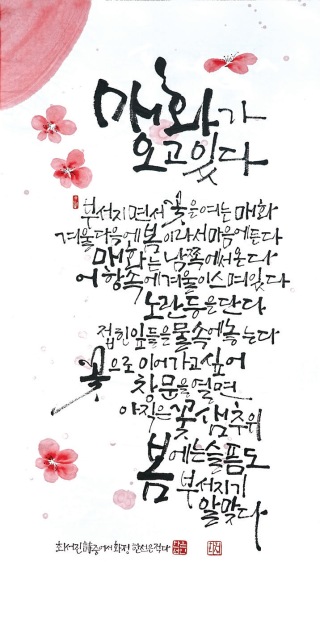 매화가
오고있다
부서지면서 꽃을여는 매화
겨울다음에 봄이라서마음에든다
매화는 남쪽에서온다
어항속에겨울이스며있다
노란등을단다
접힌잎들을물속에놓는다
꽃으로 이어가고싶어
창문을열면
아직은 꽃샘추위
봄에는슬픔도
부서지기
알맞다
최서진 詩중에서 화정 한선은적다